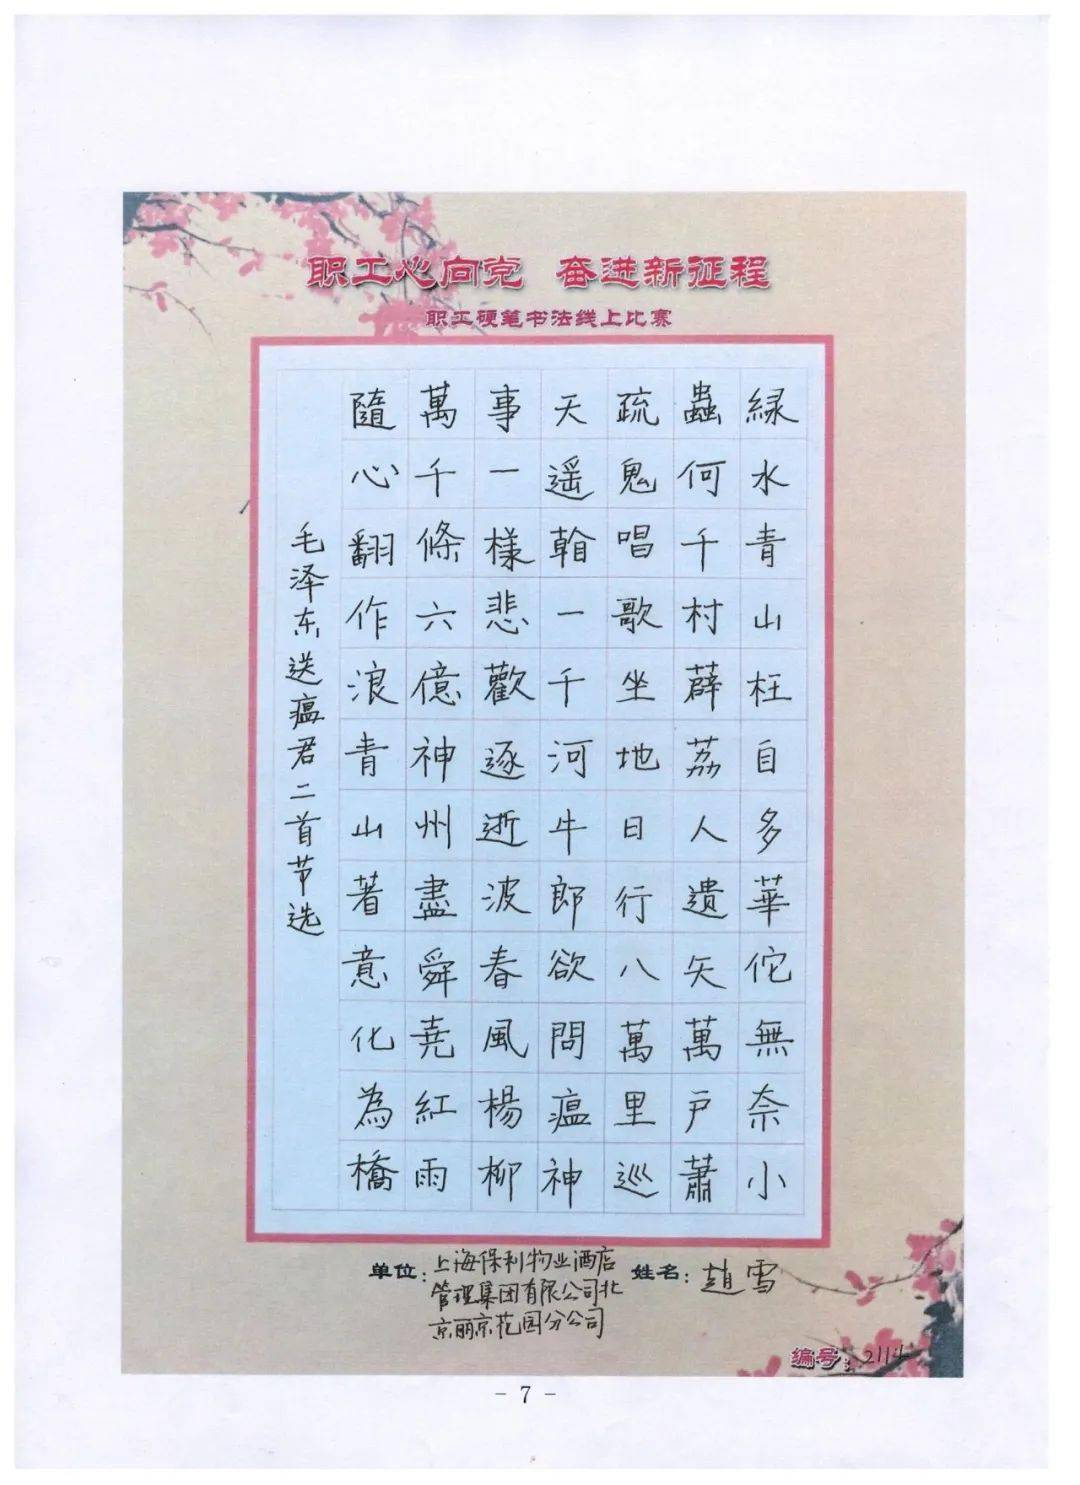 职工心向党 奋进新征程
职工硬笔书法线上比赛
緑水青山枉自多華佗無奈小
蟲何千村薜荔人遺矢萬戶蕭
疏鬼唱歌坐地日行八萬里巡
天遥翰一千河牛郎欲問瘟神
事一樣悲歡逐逝波春風楊柳
萬千條六億神州盡舜堯紅雨
隨心翻作浪青山著意化為橋
毛泽东送瘟君二首节选
单位:上海保利物业酒店
管理集团有限公司北
京丽京花园分公司
姓名:趙雪
编号:2114
- 7 -